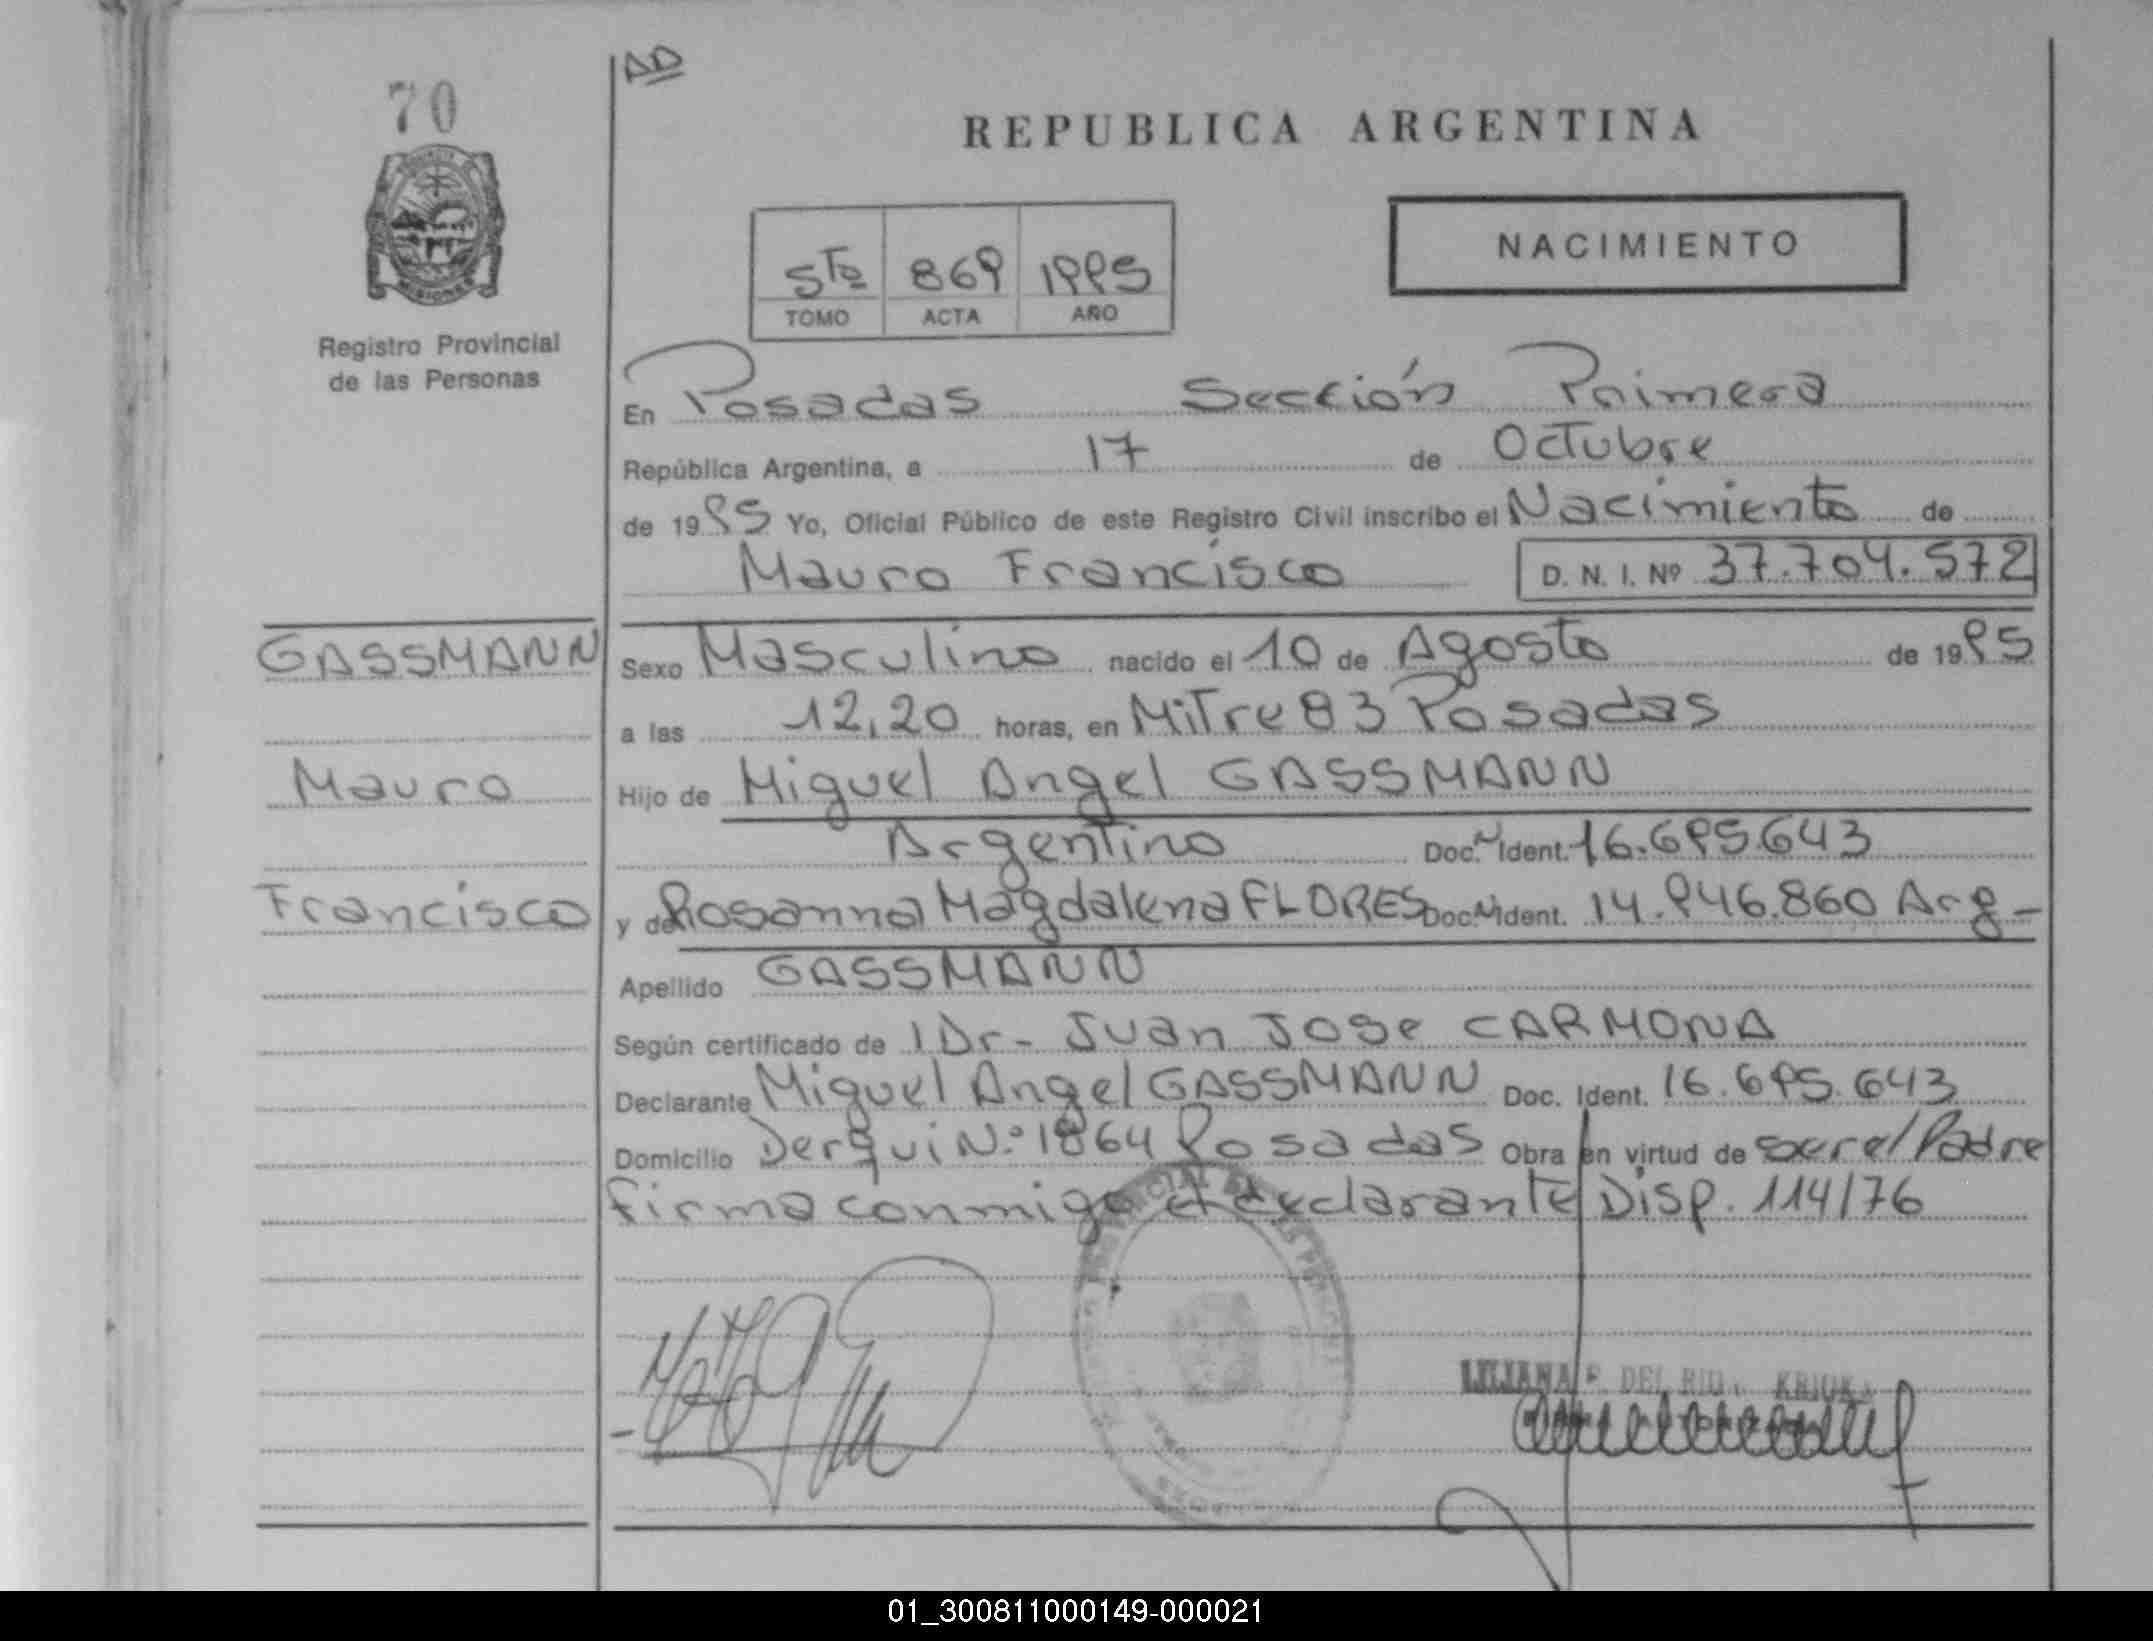 70
AD
REPUBLICA ARGENTINA
5ta 869 1995
TOMO ACTA AÑO
NACIMIENTO
MISIONES
Registro Provincial
de las Personas
En Posadas Sección Primera
República Argentina, a 17 de Octubre
de 1995 Yo, Oficial Público de este Registro Civil inscribo el Nacimiento de
Mauro Francisco D. N. I. Nº 37.704.572
GASSMANN
Mauro
Francisco
Sexo Masculino nacido el 10 de Agosto de 1995
a las 12,20 horas, en Mitre 83 Posadas
Hijo de Miguel Angel GASSMANN
Argentino Doc. N Ident. 16.695.643
y de Rosanna Magdalena FLORES Doc. N Ident. 14.946.860 Arg-
Apellido GASSMANN
Según certificado de l Dr- Juan Jose CARMONA
Declarante Miguel Angel GASSMANN Doc. Ident. 16.695.643
Domicilio Derqui N:º 1864 Posadas Obra en virtud de ser el Padre
firma conmigo el declarante Disp. 114/76
LILIANA DEL RIO
01_300811000149-000021